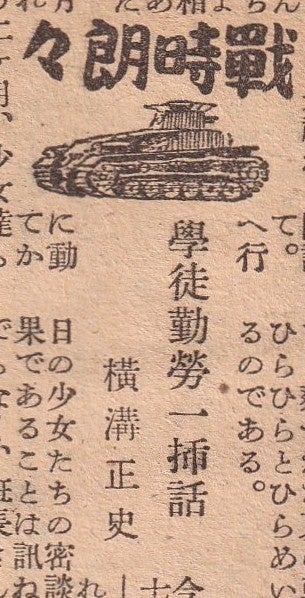 戰時朗々
て。
へ行
ひらひらとひらめい
るのである。
學徒勤勞一挿話
横溝正史
に動
てか
日の少女たちの密談
果であることは訊ね